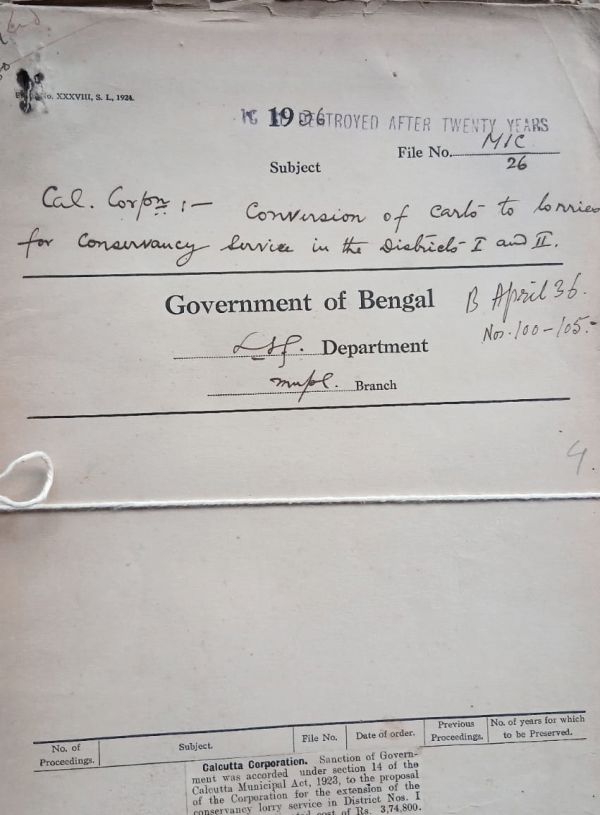 No. XXXVIII, S. L., 1924.
1936
DESTROYED AFTER TWENTY YEARS
File No. M1C
26
Subject
Cal. Corpn :— Conversion of carts to lorries
for Conservancy Service in the Districts I and II.
Government of Bengal
B April 36.
Nos. 100-105.-
L.S.G. Department
Mupl. Branch
4.
No. of Proceedings.
Subject.
File No.
Date of order.
Previous Proceedings.
No. of years for which to be Preserved.
Calcutta Corporation. Sanction of Govern-
ment was accorded under section 14 of the
Calcutta Municipal Act, 1923, to the proposal
of the Corporation for the extension of the
conservancy lorry service in District Nos. I
cost of Rs. 3,74,800.